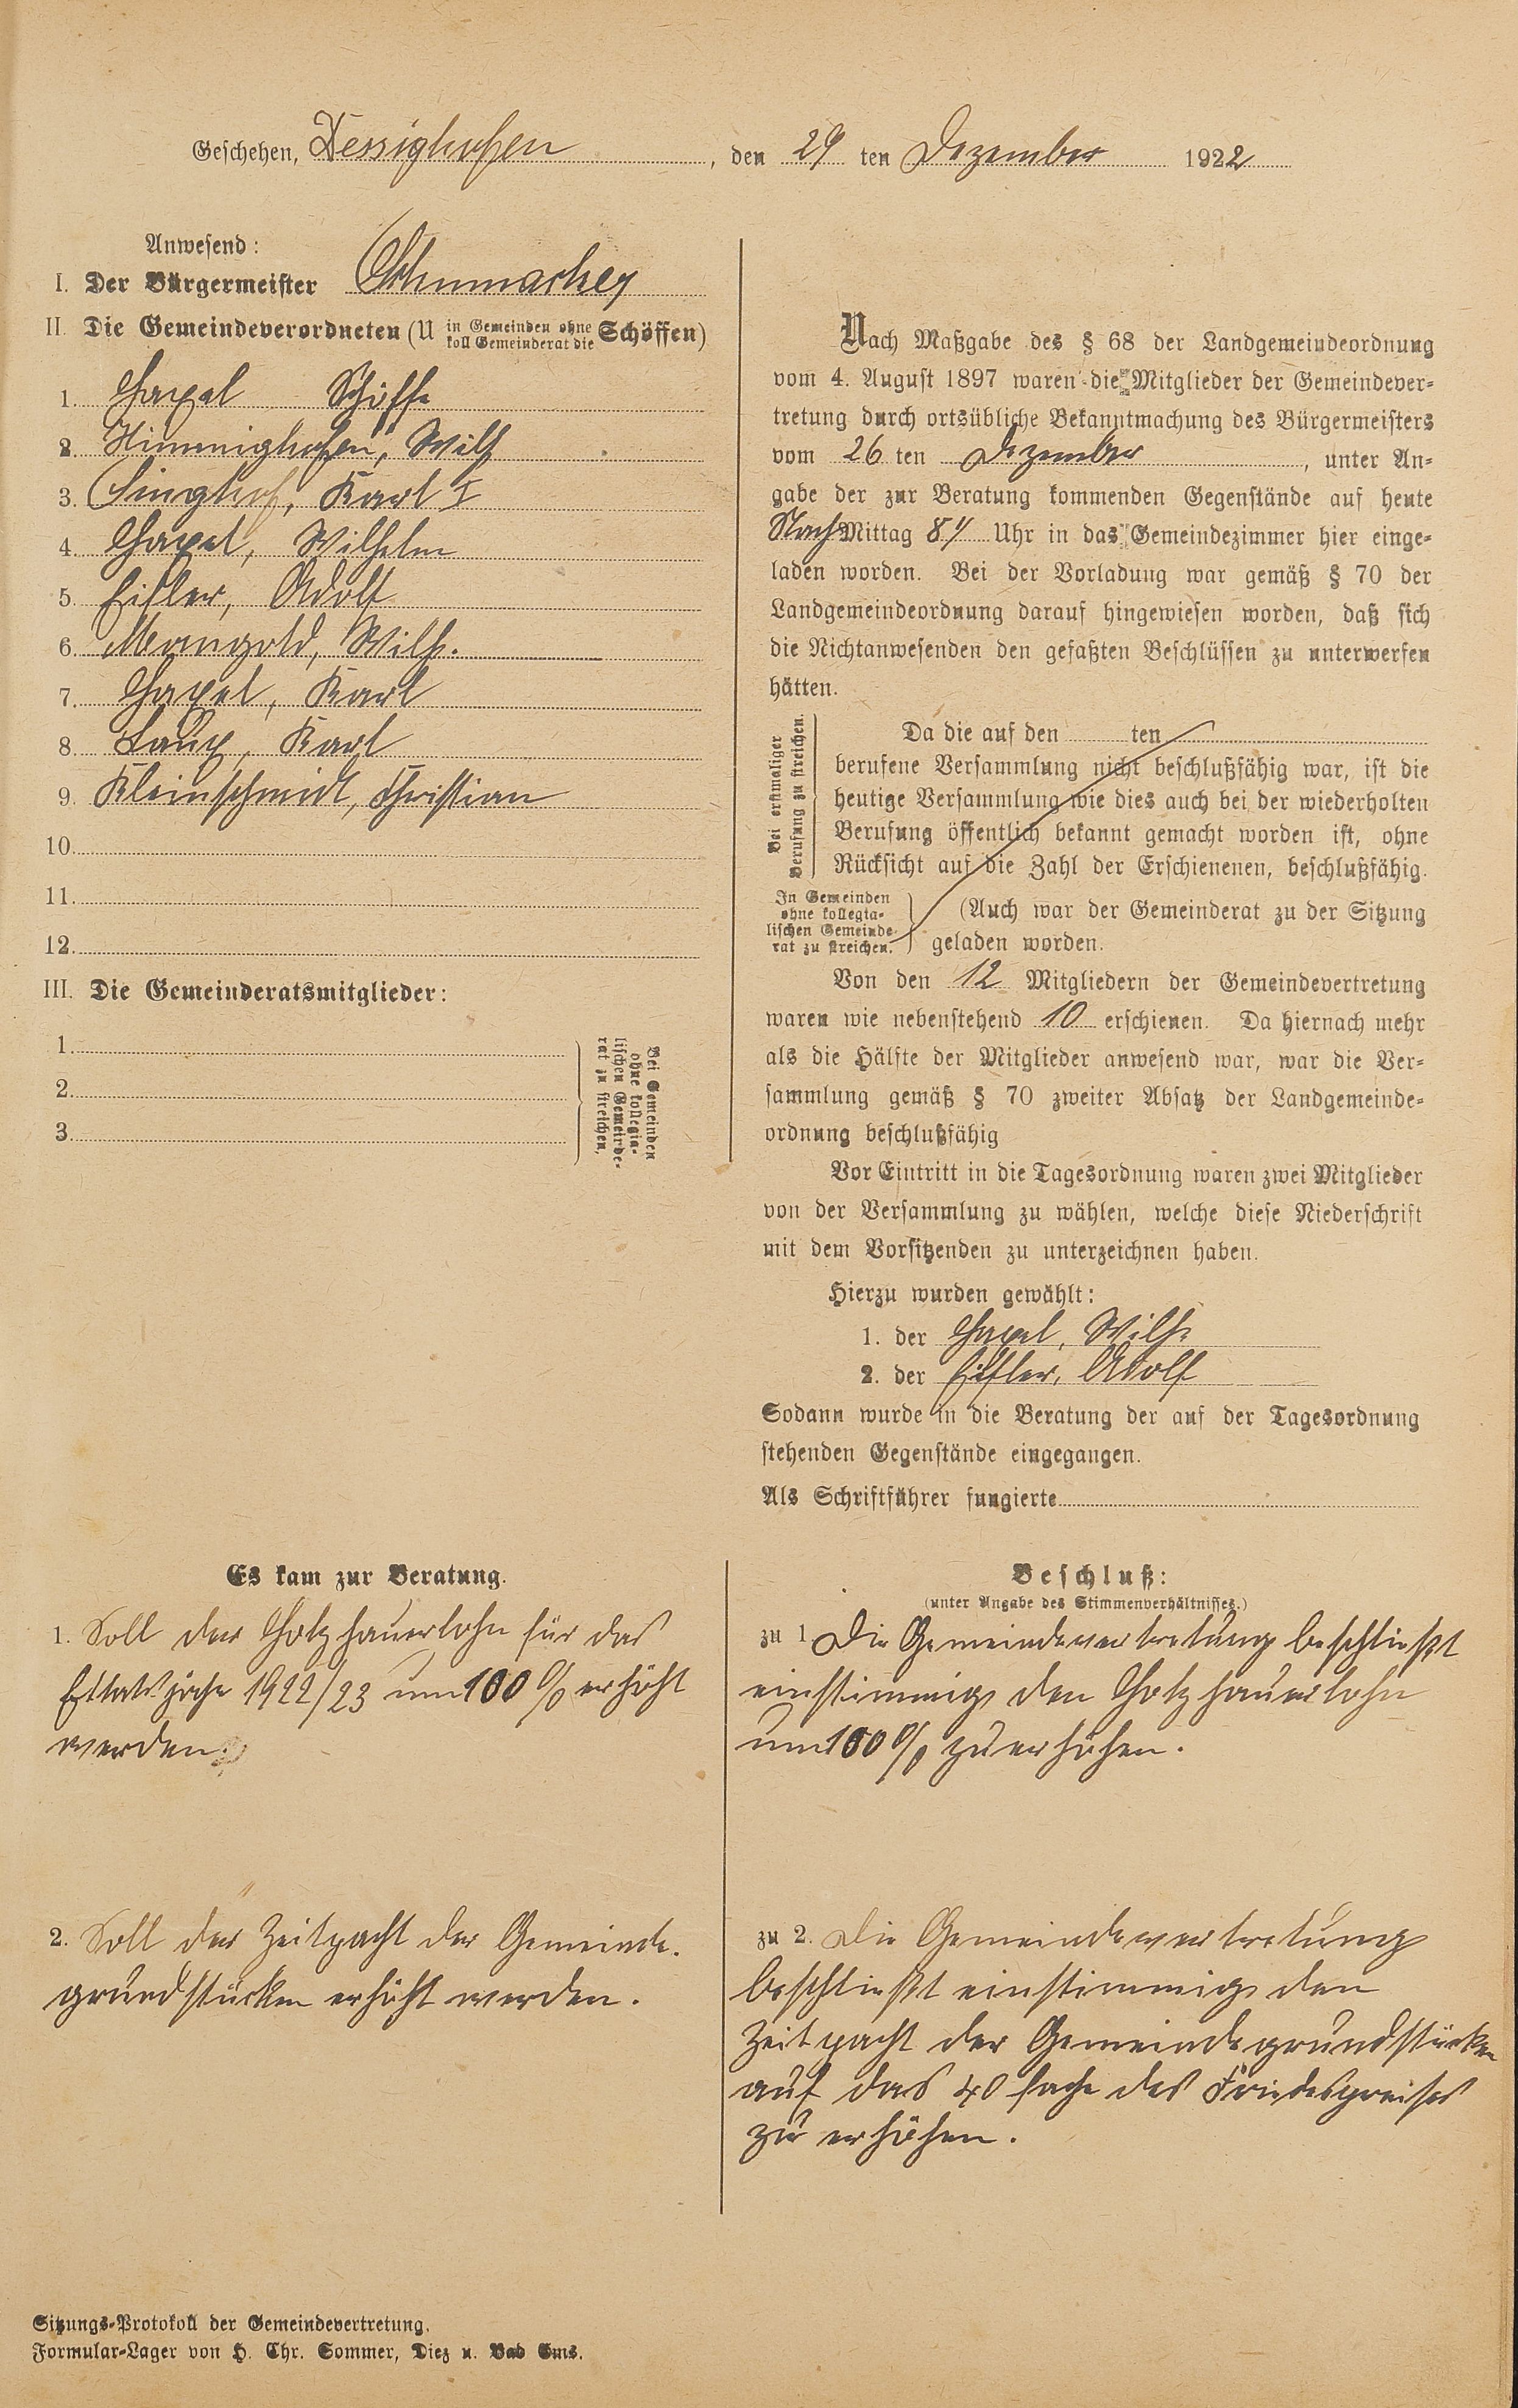 Geschehen, Dessighofen, den 29 ten Dezember 1922
Anwesend:
I. Der Bürgermeister Schumacher
II. Die Gemeindeverordneten (U in Gemeinden ohne koll Gemeinderat die Schöffen)
1. Hapel Schöffe
2. Himmighofen, Wilh
3. Singhof, Karl I
4. Hapel, Wilhelm
5. Eifler, Adolf
6. Mangold, Wilh.
7. Hapel, Karl
8. Laux, Karl
9. Kleinschmidt, Christian
10.
11.
12.
III. Die Gemeinderatsmitglieder:
1.
2.
3.
Bei Gemeinden
ohne kollegia-
lischen Gemeinde-
rat zu streichen.
Nach Maßgabe des § 68 der Landgemeindeordnung
vom 4. August 1897 waren die Mitglieder der Gemeindever-
tretung durch ortsübliche Bekanntmachung des Bürgermeisters
vom 26 ten Dezember, unter An-
gabe der zur Beratung kommenden Gegenstände auf heute
Nach Mittag 8 Uhr in das Gemeindezimmer hier einge-
laden worden. Bei der Vorladung war gemäß § 70 der
Landgemeindeordnung darauf hingewiesen worden, daß sich
die Nichtanwesenden den gefaßten Beschlüssen zu unterwerfen
hätten.
Bei erstmaliger
Berufung zu streichen.
Da die auf den ten
berufene Versammlung nicht beschlußfähig war, ist die
heutige Versammlung wie dies auch bei der wiederholten
Berufung öffentlich bekannt gemacht worden ist, ohne
Rücksicht auf die Zahl der Erschienenen, beschlußfähig.
In Gemeinden
ohne kollegia-
lischen Gemeinde-
rat zu streichen.
(Auch war der Gemeinderat zu der Sitzung
geladen worden.
Von den 12 Mitgliedern der Gemeindevertretung
waren wie nebenstehend 10 erschienen. Da hiernach mehr
als die Hälfte der Mitglieder anwesend war, war die Ver-
sammlung gemäß § 70 zweiter Absatz der Landgemeinde-
ordnung beschlußfähig
Vor Eintritt in die Tagesordnung waren zwei Mitglieder
von der Versammlung zu wählen, welche diese Niederschrift
mit dem Vorsitzenden zu unterzeichnen haben.
Hierzu wurden gewählt:
1. der Hapel, Wilh
2. der Eifler, Adolf
Sodann wurde in die Beratung der auf der Tagesordnung
stehenden Gegenstände eingegangen.
Als Schriftführer fungierte
Es kam zur Beratung.
1. Soll der Holzhauerlohn für das
Ettatsjahr 1922/23 um 100 % erhöht
werden.
2. Soll der Zeitpacht der Gemeinde-
grundstücken erhöht werden.
Beschluß:
(unter Angabe des Stimmenverhältnisses.)
zu 1. Die Gemeindevertretung beschließt
einstimmig den Holzhauerlohn
um 100 % zu erhöhen.
zu 2. Die Gemeindevertretung
beschließt einstimmig den
Zeitpacht der Gemeindegrundstücken
auf das 40 fache des Friedespreises
zu erhöhen.
Sitzungs-Protokoll der Gemeindevertretung.
Formular-Lager von H. Chr. Sommer, Diez u. Bad Ems.